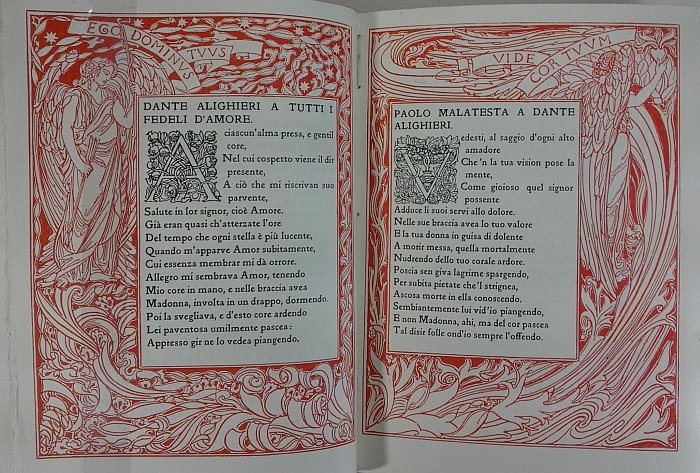 EGO DOMINUS TVVS
DANTE ALIGHIERI A TUTTI I
FEDELI D'AMORE.
A ciascun'alma presa, e gentil
core,
Nel cui cospetto viene il dir
presente,
A ciò che mi riscrivan suo
parvente,
Salute in lor signor, cioè Amore.
Già eran quasi ch'atterzate l'ore
Del tempo che ogni stella è più lucente,
Quando m'apparve Amor subitamente,
Cui essenza membrar mi dà orrore.
Allegro mi sembrava Amor, tenendo
Mio core in mano, e nelle braccia avea
Madonna, involta in un drappo, dormendo.
Poi la svegliava, e d'esto core ardendo
Lei paventosa umilmente pascea:
Appresso gir ne lo vedea piangendo.
VIDE COR TVVM
PAOLO MALATESTA A DANTE
ALIGHIERI.
Vedesti, al saggio d'ogni alto
amadore
Che 'n la tua vision pose la
mente,
Come gioioso quel signor
possente
Adduce li suoi servi allo dolore.
Nelle sue braccia avea lo tuo valore
E la tua donna in guisa di dolente
A morir messa, quella mortalmente
Nudrendo dello tuo corale ardore.
Poscia sen giva lagrime spargendo,
Per subita pietate che'l strignea,
Ascosa morte in ella conoscendo.
Sembiantemente lui vid'io piangendo,
E non Madonna, ahi, ma del cor pascea
Tal disir folle ond'io sempre l'offendo.